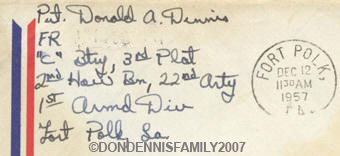 Pvt. Donald A. Dennis
FR
"C" Btry, 3rd Plat
2nd How Bn, 22nd Arty
1ST Armd Div
Fort Polk, La
FORT POLK,
DEC 12
1130 AM
1957
LA.
©DONDENNISFAMILY2007